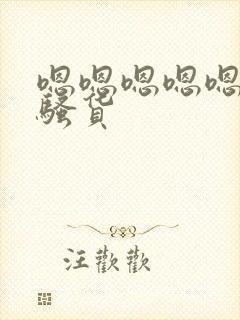 嗯嗯嗯嗯嗯
骚货
汪歡歡